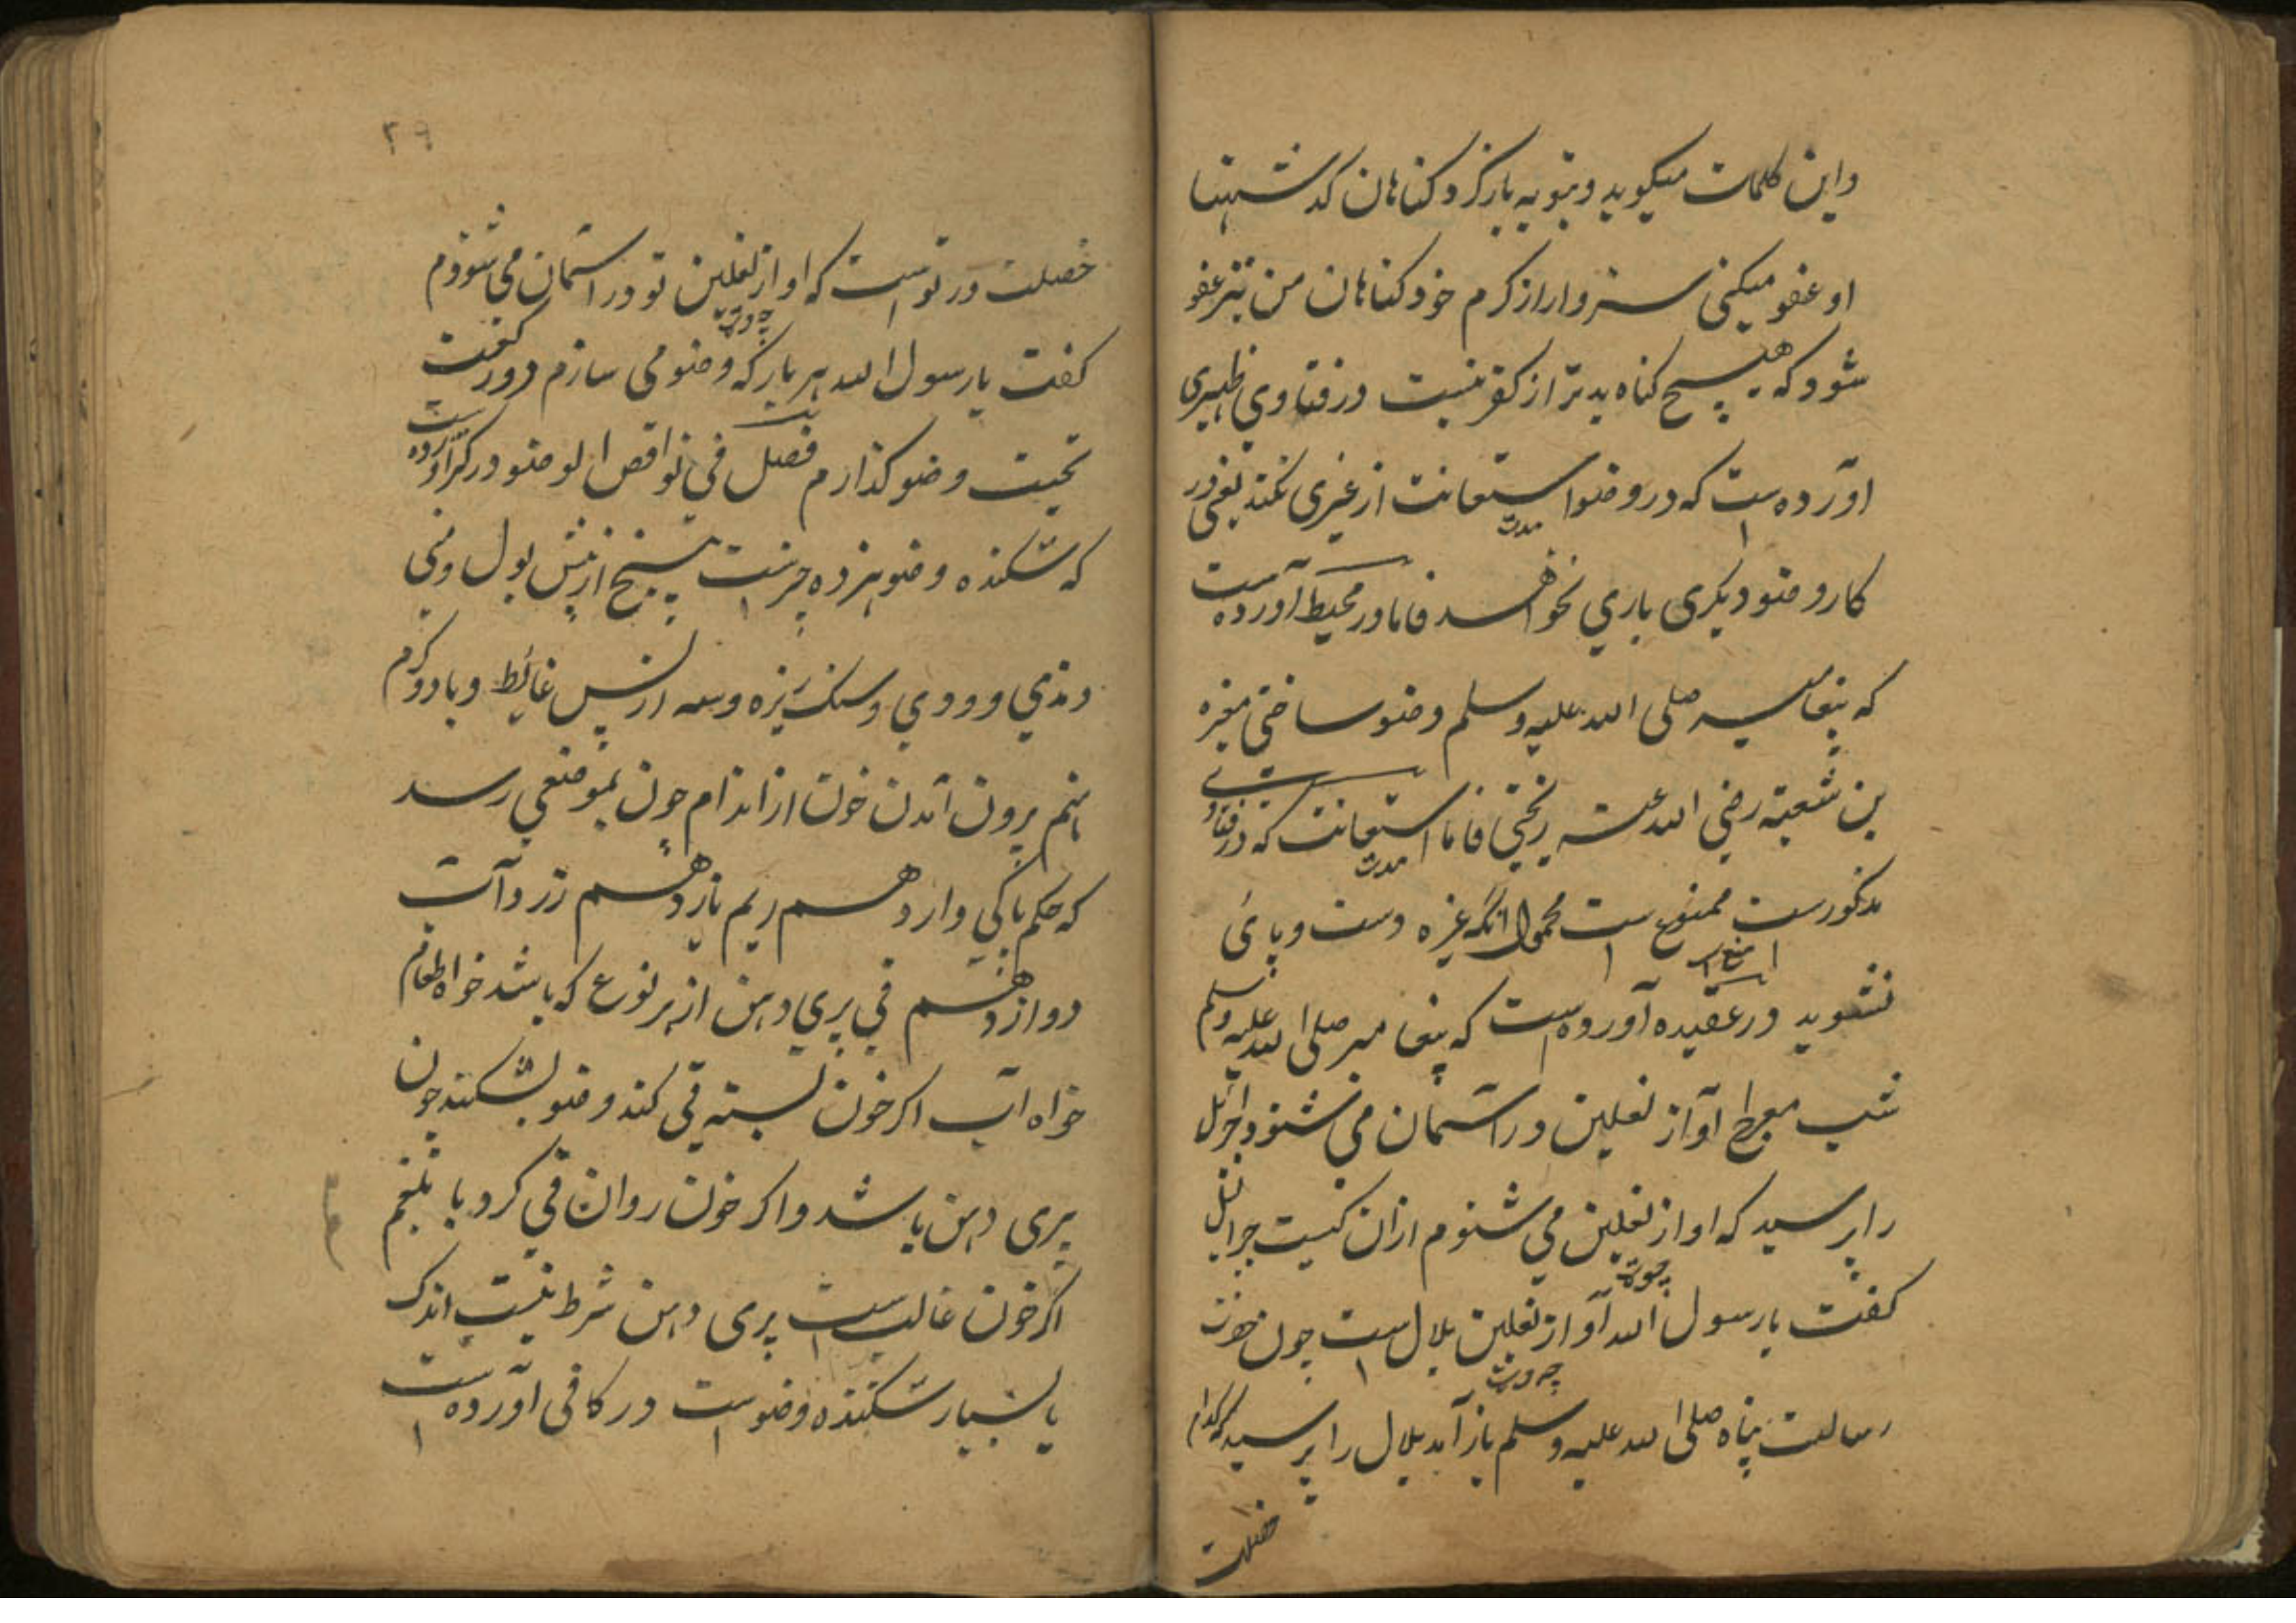 واین کلمات میکوید وبتوبه بازکرد کناهان کدشتها
او عفو میکنی سزوار از کرم خود کناهان من نیز عفو
شود که هیچ کناه بدتر از کفر نیست در فتاوی ظهیری
آورده است که در وضو استعانت از غیری نکند یعنی در
مدت
کار وضو دیکری یاری نخواهد فاما در محیط آورده است
که پیغامبر صلی الله علیه وسلم وضو ساختی مغیره
بن شعبة رضی الله عنه ریختی فاما استعانت که در فتاوی
مدت
مذکورست ممنوع است محمول آنکه غیره دست و پای
نشوید در عقیده آورده است که پیغامبر صلی الله علیه وسلم
شب معراج آواز نعلین در آسمان می شنود جبرائیل
را پرسید که اواز نعلین می شنوم ازان کیست جبرائیل
کفت یا رسول الله آواز نعلین بلال است چون حضرت
رسالت پناه صلی الله علیه وسلم باز آمد بلال را پرسید که کدام
خصلت
۲۹
خصلت در تو است که اواز نعلین تو در آسمان می شنودم
کفت یا رسول الله هر بار که وضو می سازم دو رکعت
تحیت وضو کذارم فصل فی نواقض الوضو در کنز آورده است
که شکننده وضو هیزده چیزست پنج از پیش بول و منی
ومذی وودی وسنک ریزه وسه از پس غایط و باد و کرم
نهم برون آمدن خون از اندام چون بموضعی رسد
که حکم پاکی دارد دهم ریم یازدهم زرد آب
دوازدهم قی پری دهن از هر نوع که باشد خواه طعام
خواه آب اکر خون بسته قی کند وضو بشکند چون
پری دهن باشد واکر خون روان قی کرد با بلغم
اکر خون غالب است پری دهن شرط نیست اندک
یا بسیار شکننده وضو است در کافی آورده است